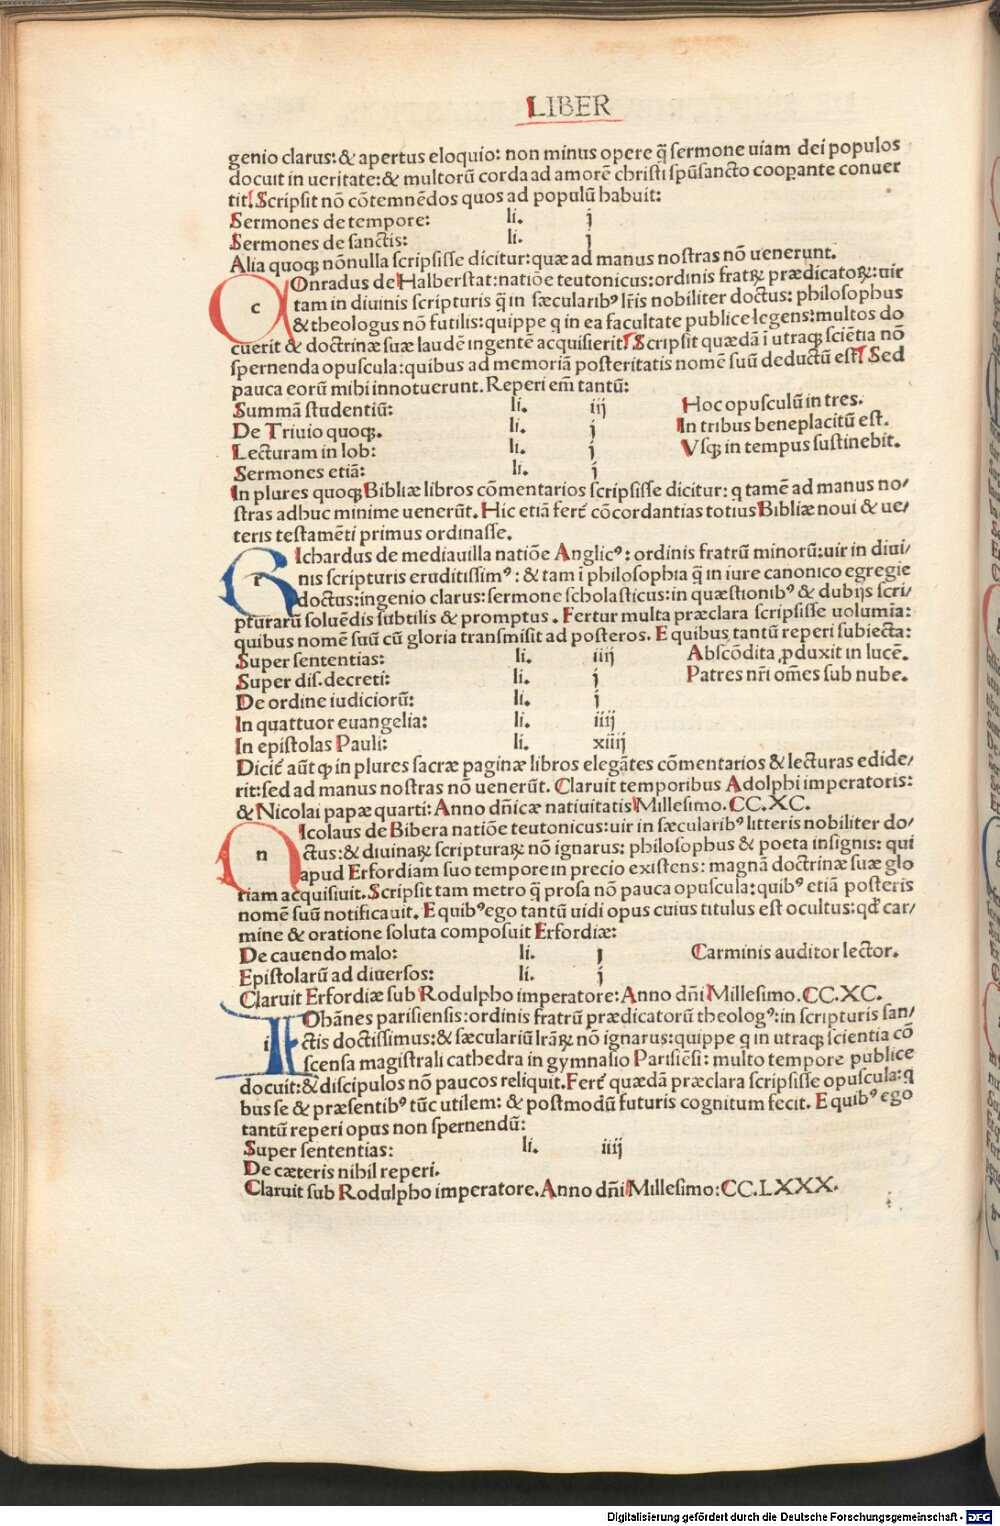 LIBER
genio clarus: & apertus eloquio: non minus opere q̃ sermone uiam dei populos
docuit in ueritate: & multorũ corda ad amorẽ christi spũsancto cooꝑante conuer
tit. Scripsit nõ cõtemnẽdos quos ad populũ habuit:
Sermones de tempore: li. j
Sermones de sanctis: li. j
Alia quoqꝫ nõnulla scripsisse dicitur: quæ ad manus nostras nõ uenerunt.
c Onradus de Halberstat: natiõe teutonicus: ordinis fratrꝝ prædicatoꝝ: uir
tam in diuinis scripturis q̃ in sæcularibꝰ lr̃is nobiliter doctus: philosophus
& theologus nõ futilis: quippe q in ea facultate publice legens: multos do
cuerit & doctrinæ suæ laudẽ ingentẽ acquisierit. Scripsit quædã ĩ utraqꝫ sciẽtia nõ
spernenda opuscula: quibus ad memoriã posteritatis nomẽ suũ deductũ est. Sed
pauca eorũ mihi innotuerunt. Reperi em̃ tantũ:
Summã studentiũ: li. iij Hoc opusculũ in tres.
De Triuio quoqꝫ. li. j In tribus beneplacitũ est.
Lecturam in Iob: li. j Vsqꝫ in tempus sustinebit.
Sermones etiã: li. j
In plures quoqꝫ Bibliæ libros cõmentarios scripsisse dicitur: q tamẽ ad manus no/
stras adhuc minime uenerũt. Hic etiã fert̃ cõcordantias totius Bibliæ noui & ue/
teris testamẽti primus ordinasse.
r Ichardus de mediauilla natiõe Anglicꝰ: ordinis fratrũ minorũ: uir in diui/
nis scripturis eruditissimꝰ: & tam ĩ philosophia q̃ in iure canonico egregie
doctus: ingenio clarus: sermone scholasticus: in quæstionibꝰ & dubijs scri/
pturarũ soluẽdis subtilis & promptus. Fertur multa præclara scripsisse uolumĩa:
quibus nomẽ suũ cũ gloria transmisit ad posteros. E quibus tantũ reperi subiecta:
Super sententias: li. iiij Abscõdita ꝓduxit in lucẽ.
Super dis. decreti: li. j Patres nr̃i om̃es sub nube.
De ordine iudiciorũ: li. j
In quattuor euangelia: li. iiij
In epistolas Pauli: li. xiiij
Dicit̃ aũt ꝙ in plures sacræ paginæ libros elegãtes cõmentarios & lecturas edide/
rit: sed ad manus nostras nõ uenerũt. Claruit temporibus Adolphi imperatoris:
& Nicolai papæ quarti: Anno dñicæ natiuitatis Millesimo. CC. XC.
n Icolaus de Bibera natiõe teutonicus: uir in sæcularibꝰ litteris nobiliter do/
ctus: & diuinaꝝ scripturaꝝ nõ ignarus: philosophus & poeta insignis: qui
apud Erfordiam suo tempore in precio existens: magnã doctrinæ suæ glo
riam acquisiuit. Scripsit tam metro q̃ prosa nõ pauca opuscula: quibꝰ etiã posteris
nomẽ suũ notificauit. E quibꝰ ego tantũ uidi opus cuius titulus est ocultus: qđ car/
mine & oratione soluta composuit Erfordiæ:
De cauendo malo: li. j Carminis auditor lector.
Epistolarũ ad diuersos: li. j
Claruit Erfordiæ sub Rodulpho imperatore: Anno dñi Millesimo. CC. XC.
i Ohãnes parisiensis: ordinis fratrũ prædicatorũ theologꝰ: in scripturis san/
ctis doctissimus: & sæculariũ lr̃arꝝ nõ ignarus: quippe q in utraqꝫ scientia cõ
scensa magistrali cathedra in gymnasio Parisiẽsi: multo tempore publice
docuit: & discipulos nõ paucos reliquit. Fert̃ quædã præclara scripsisse opuscula: q
bus se & præsentibꝰ tũc utilem: & postmodũ futuris cognitum fecit. E quibꝰ ego
tantũ reperi opus non spernendũ:
Super sententias: li. iiij
De cæteris nihil reperi.
Claruit sub Rodulpho imperatore. Anno dñi Millesimo: CC. LXXX.
Digitalisierung gefördert durch die Deutsche Forschungsgemeinschaft - DFG